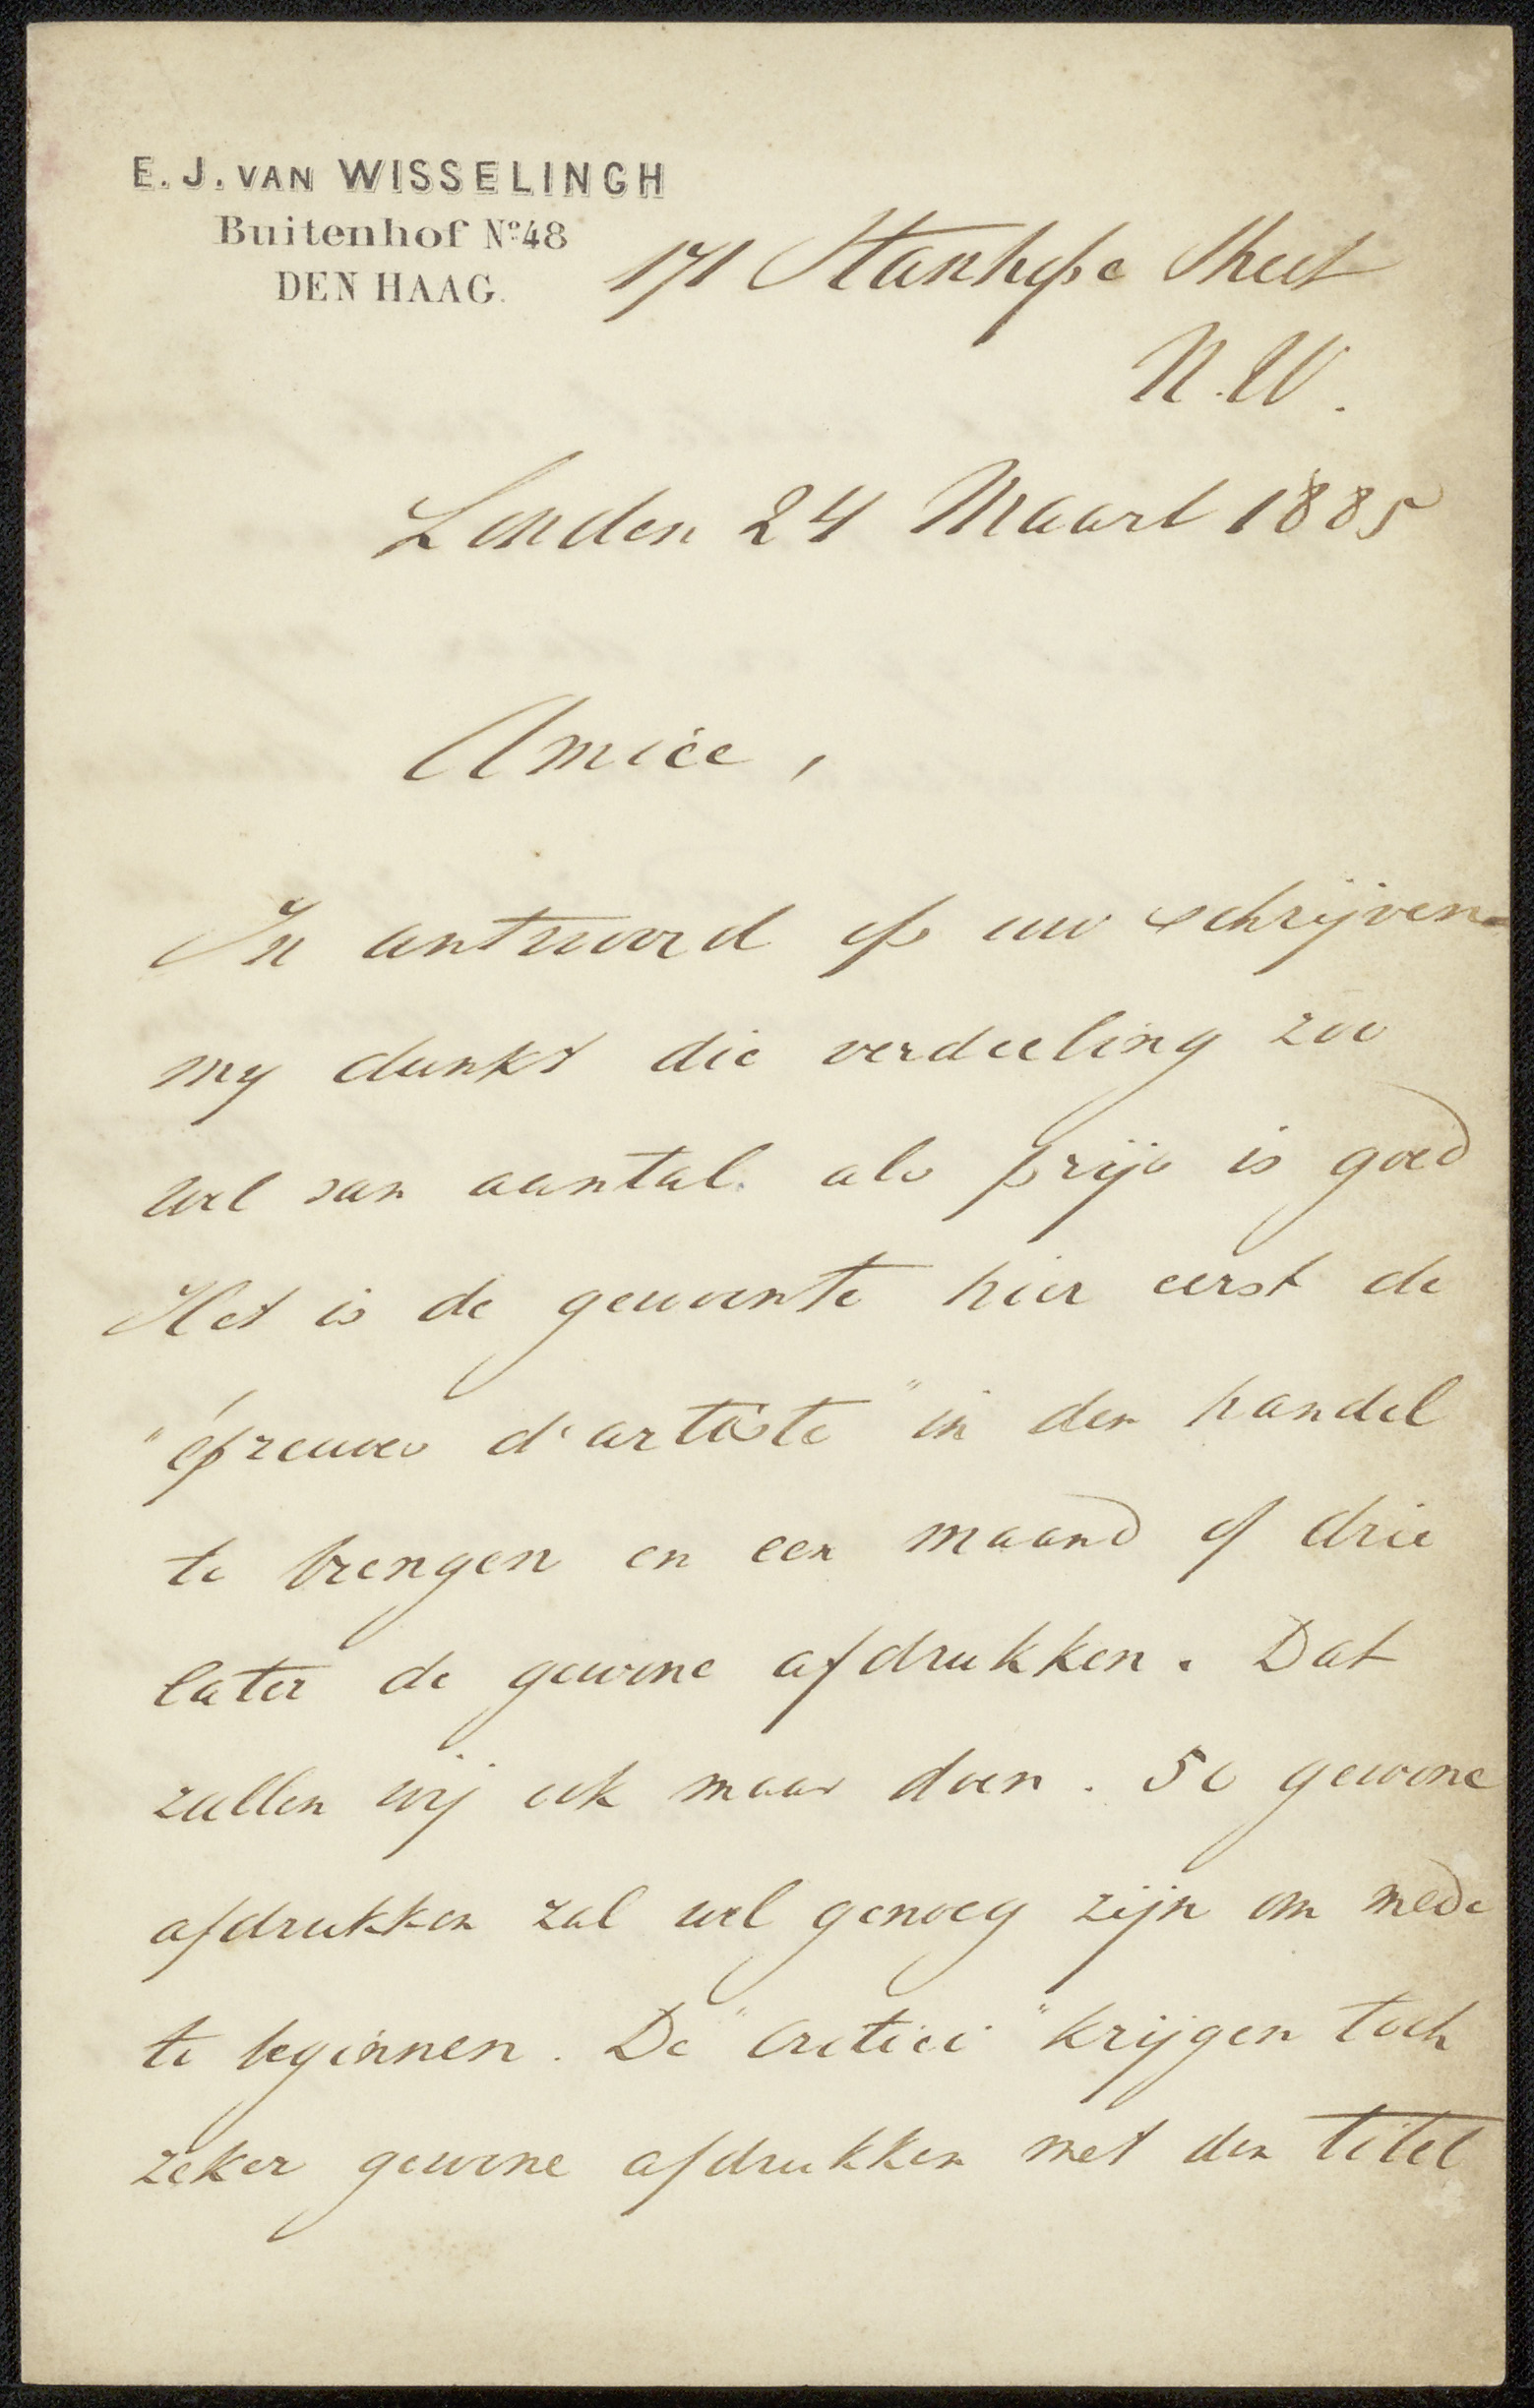 E. J. VAN WISSELINGH
Buitenhof No. 48
DEN HAAG.
171 Stanhope Street
N.W.
Londen 24 Maart 1885
Amice,
In antwoord op uw schrijven
my dunkt die verdeeling zoo
wel van aantal als prijs is goed
Het is de gewoonte hier eerst de
"épreuves d'artiste" in den handel
te brengen en een maand of drie
later de gewone afdrukken. Dat
zullen wij ook maar doen. 50 gewone
afdrukken zal wel genoeg zijn om mede
te beginnen. De "Critici" krijgen toch
zeker gewone afdrukken met den titel